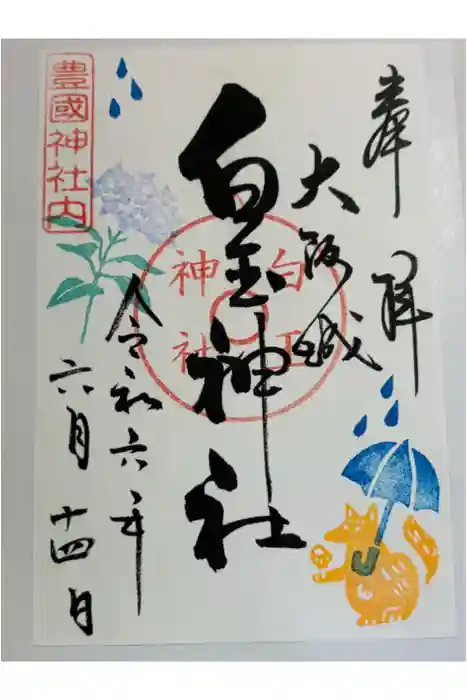 奉拝
大阪城
白玉神社
白玉
神社
令和六年
六月十四日
豊國神社内